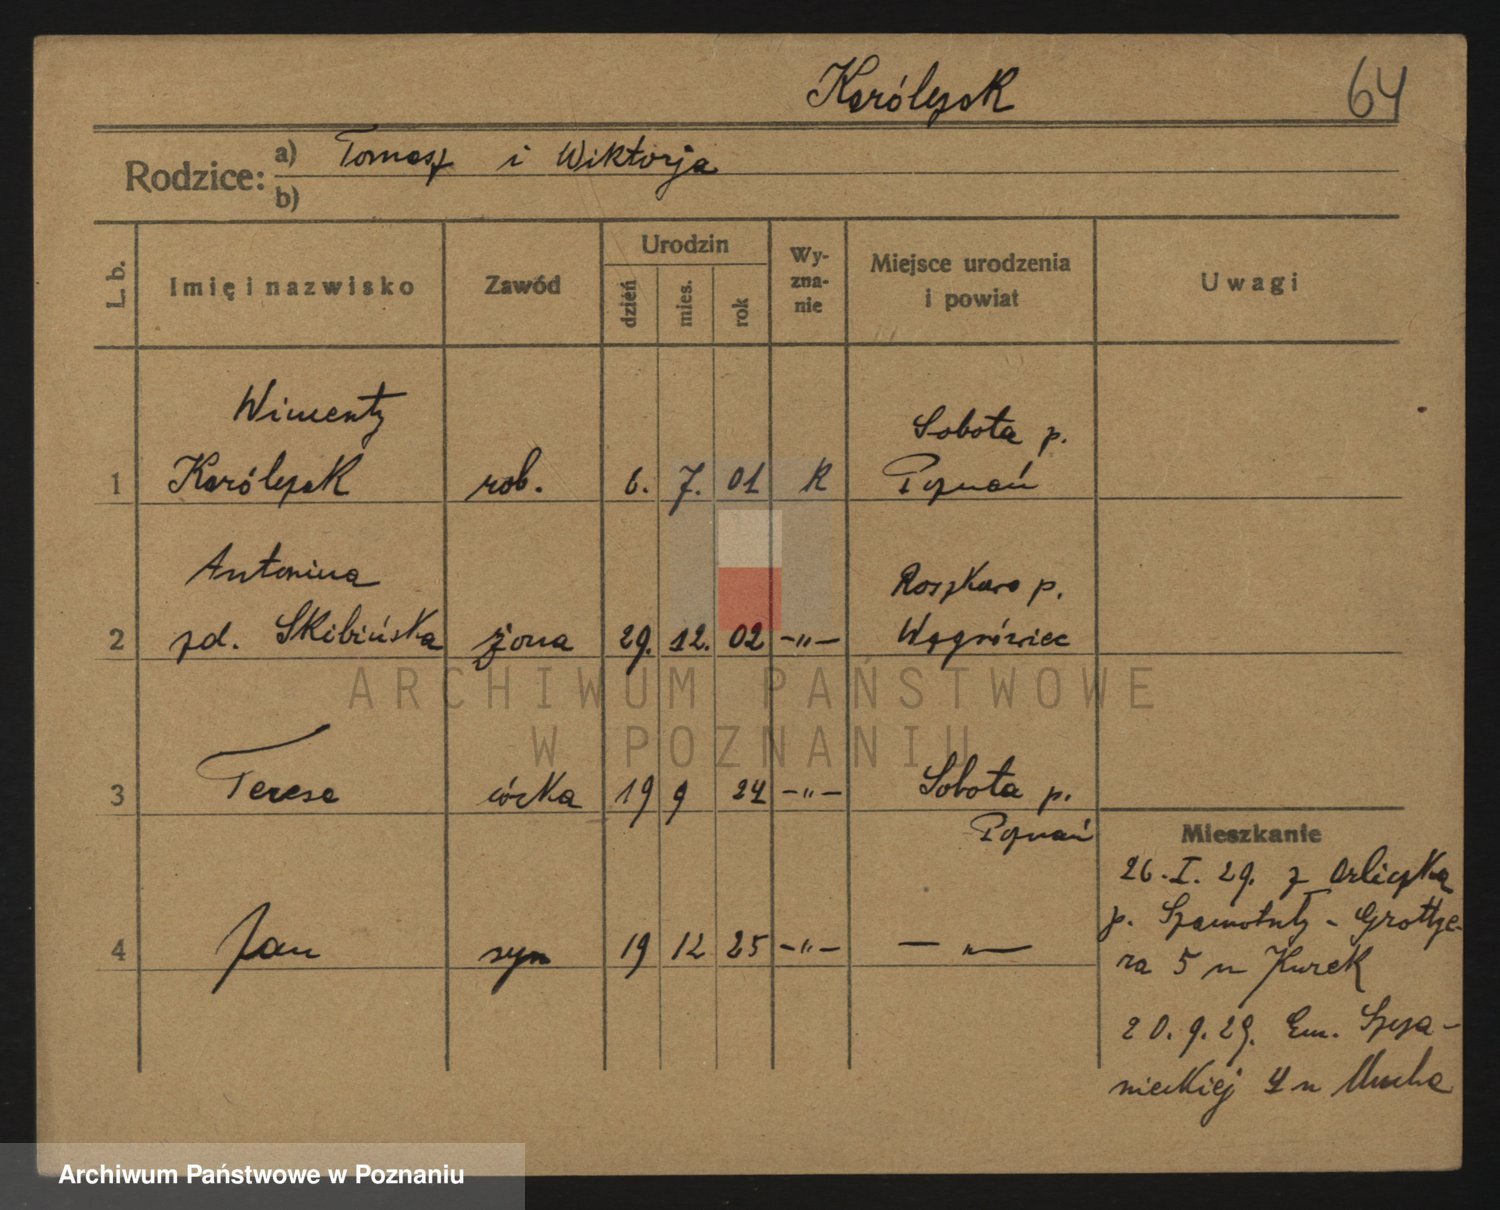 Karólczak
64
Rodzice:
a) Tomasz i Wiktorja
b)
L. b.
Imię i nazwisko
Zawód
Urodzin
dzień
mies.
rok
Wy-
zna-
nie
Miejsce urodzenia
i powiat
Uwagi
Wincenty
1 Karólczak rob. 6. 7. 01 k
Sobota p.
Poznań
Antonina
2 zd. Skibińska żona 29. 12. 02 -"-
Roszkowo p.
Wągrówiec
3 Teresa córka 19 9 24 -"-
Sobota p.
Poznań
4 Jan syn 19 12 25 -"- — " —
Mieszkanie
26. I. 29. z Orliczka
p. Szamotuły - Grottge-
ra 5 u Kurek
20. 9. 29. Em. Szcza-
nieckiej 4 u Mucha
ARCHIWUM PAŃSTWOWE
W POZNANIU
Archiwum Państwowe w Poznaniu